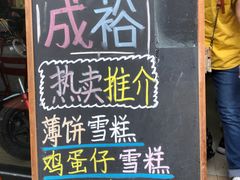 成裕
热卖推介
薄饼雪糕
鸡蛋仔雪糕